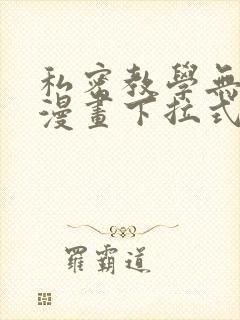 私密教學無
漫畫下拉式
羅霸道